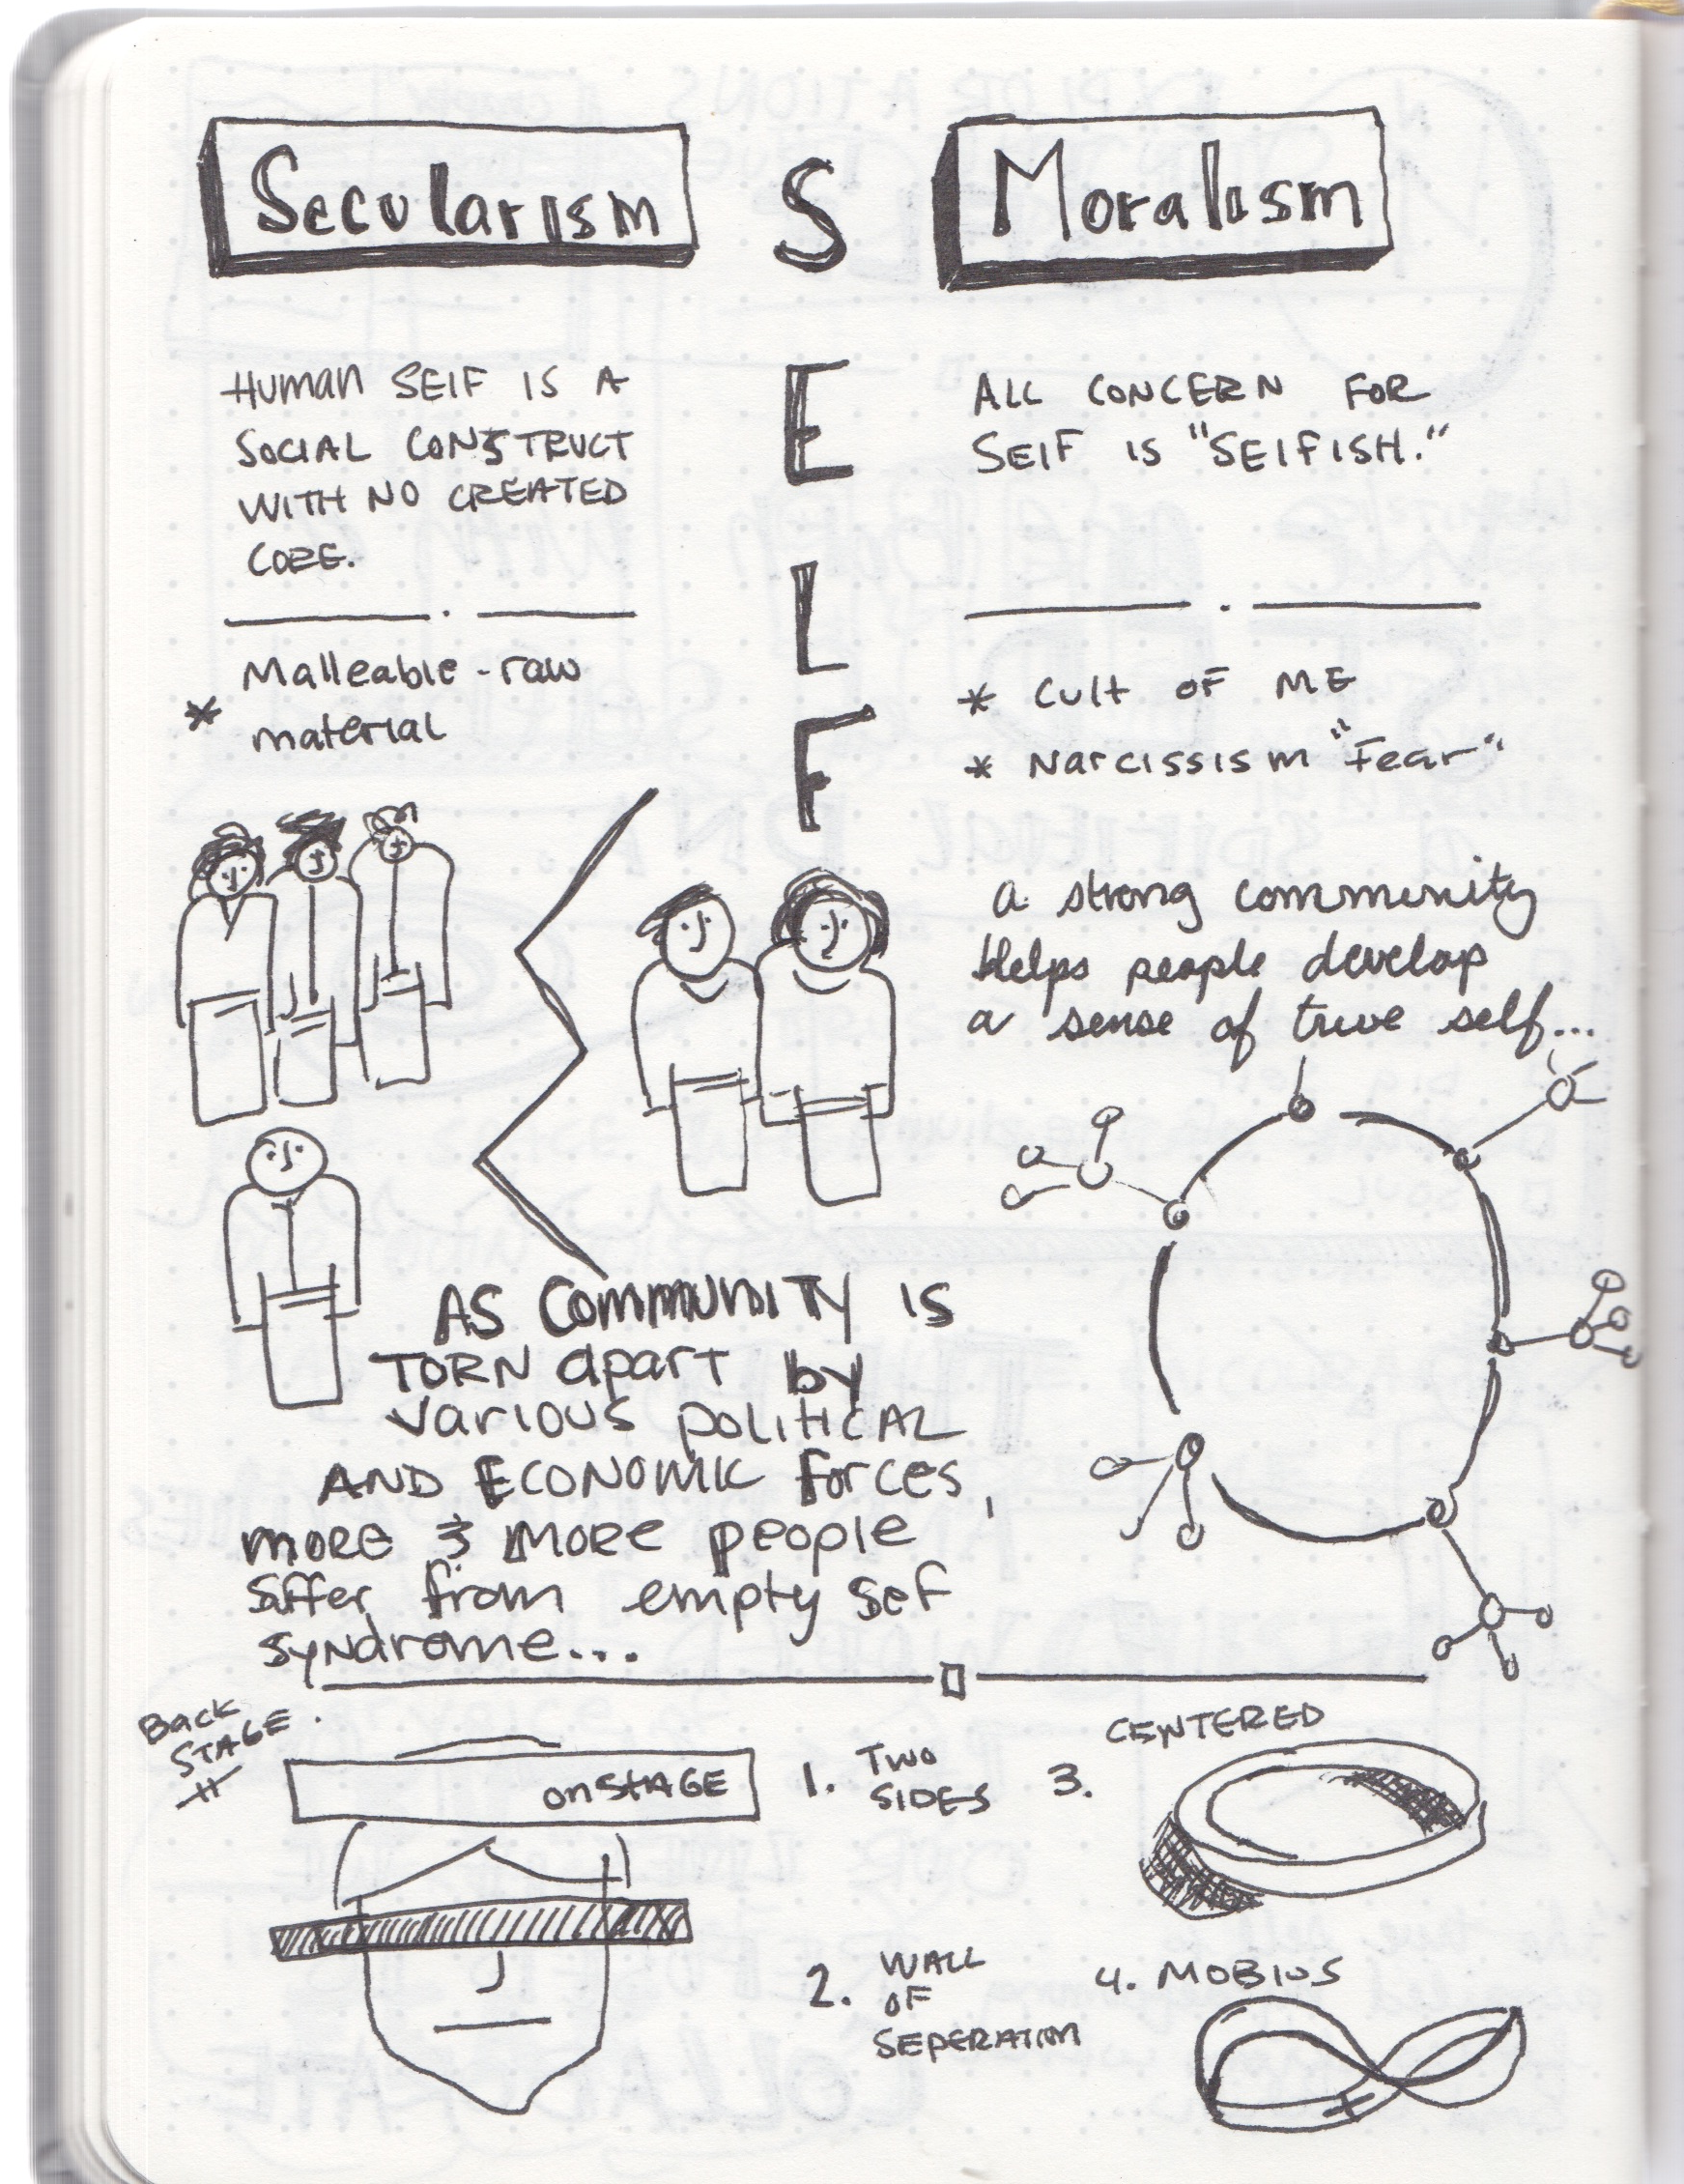 Secularism
Moralism
S
E
L
F
Human SElF IS A
SOCIAL CONSTRUCT
WITH NO CREATED
CORE.
Malleable - raw
* material
ALL CONCERN FOR
SElF IS "SElFISH."
* Cult OF ME
* Narcissism "Fear"
a strong community
Helps people develop
a sense of true self...
AS COMMUNITY IS
TORN apart by
various political
AND ECONOMIC forces,
more & more people
suffer from empty Self
syndrome...
Back
STAGE
onSTAGE
1. Two
SIDES
2. WALL
OF
SEPERATION
CENTERED
3.
4. MOBIUS